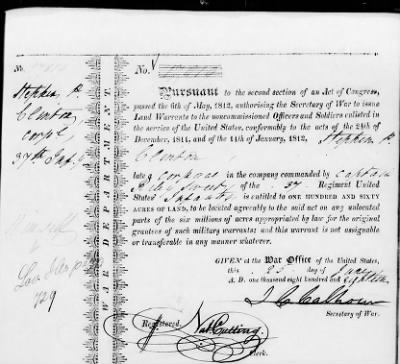 No.
Stephen P.
Clinton
corpl
37th Inf.
WAR DEPARTMENT.
No.
Pursuant to the second section of an Act of Congress,
passed the 6th of May, 1812, authorising the Secretary of War to issue
Land Warrants to the noncommissioned Officers and Soldiers enlisted
in the service of the United States, conformably to the acts of the 24th of
December, 1811, and of the 11th of January, 1812, Stephen P.
Clinton
late a corporal in the company commanded by Captain
of the 37 Regiment United
States' Infantry is entitled to ONE HUNDRED AND SIXTY
ACRES OF LAND, to be located agreeably to the said act on any unlocated
parts of the six millions of acres appropriated by law for the original
grantees of such military warrants; and this warrant is not assignable
or transferable in any manner whatever.
GIVEN at the War Office of the United States,
this 25 day of
A. D. one thousand eight hundred and
J C Calhoun
Secretary of War.
Registered. Nat Cutting.
Clerk.